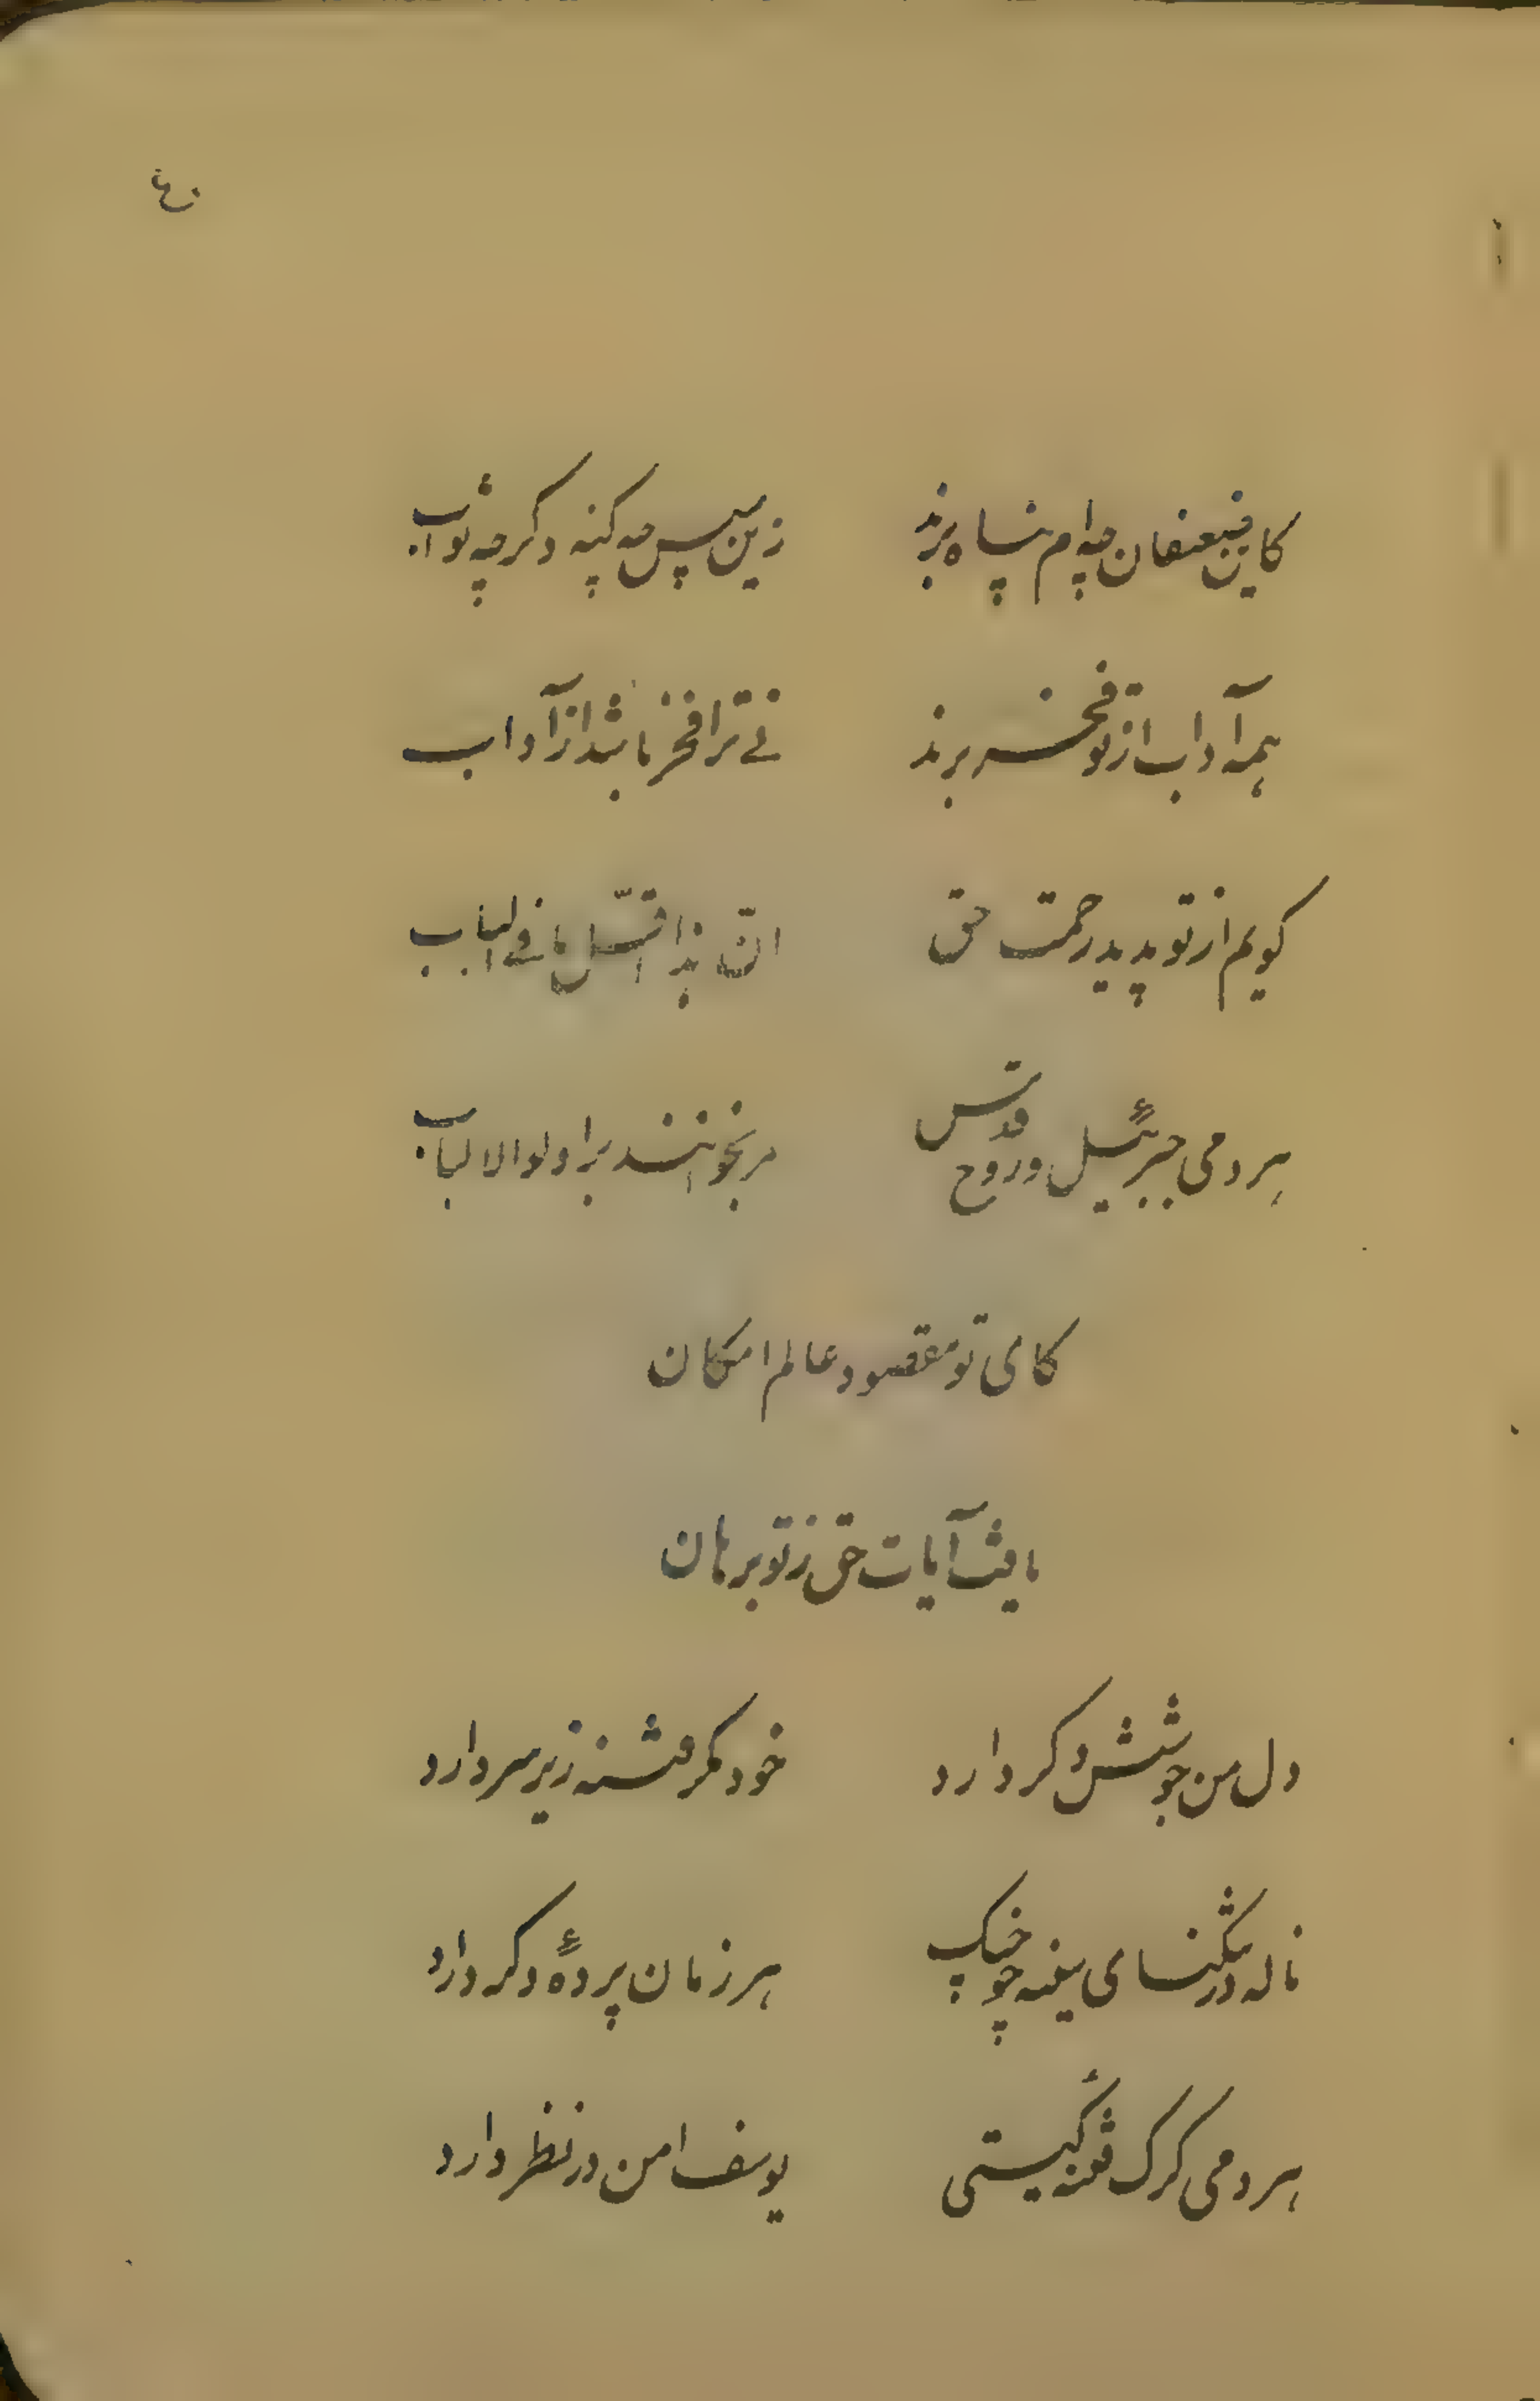 کاین ضعیفان چه ام پناه برند زین سپس چه کنه دکر چه ثواب
همه آداب از تو فخر برند نی ترا فخر باشد از آداب
کویم ار تو پدید رحمت حق انّ هذا اقلّ ما فی الباب
هر دمی جبرئیل و روح قدس بر بخوانند بر اولوالالباب
کای تو مقصود عالم امکان
یافت آیات حق ز تو برهان
دل من جوشش دکر دارد خود مکر فتنه زیر سر دارد
ناله در تنکنای سینه چو چنک هر زمان پردهٔ دکر دارد
هر دمی کرک فتنهٔ کیتی یوسف امن در نظر دارد